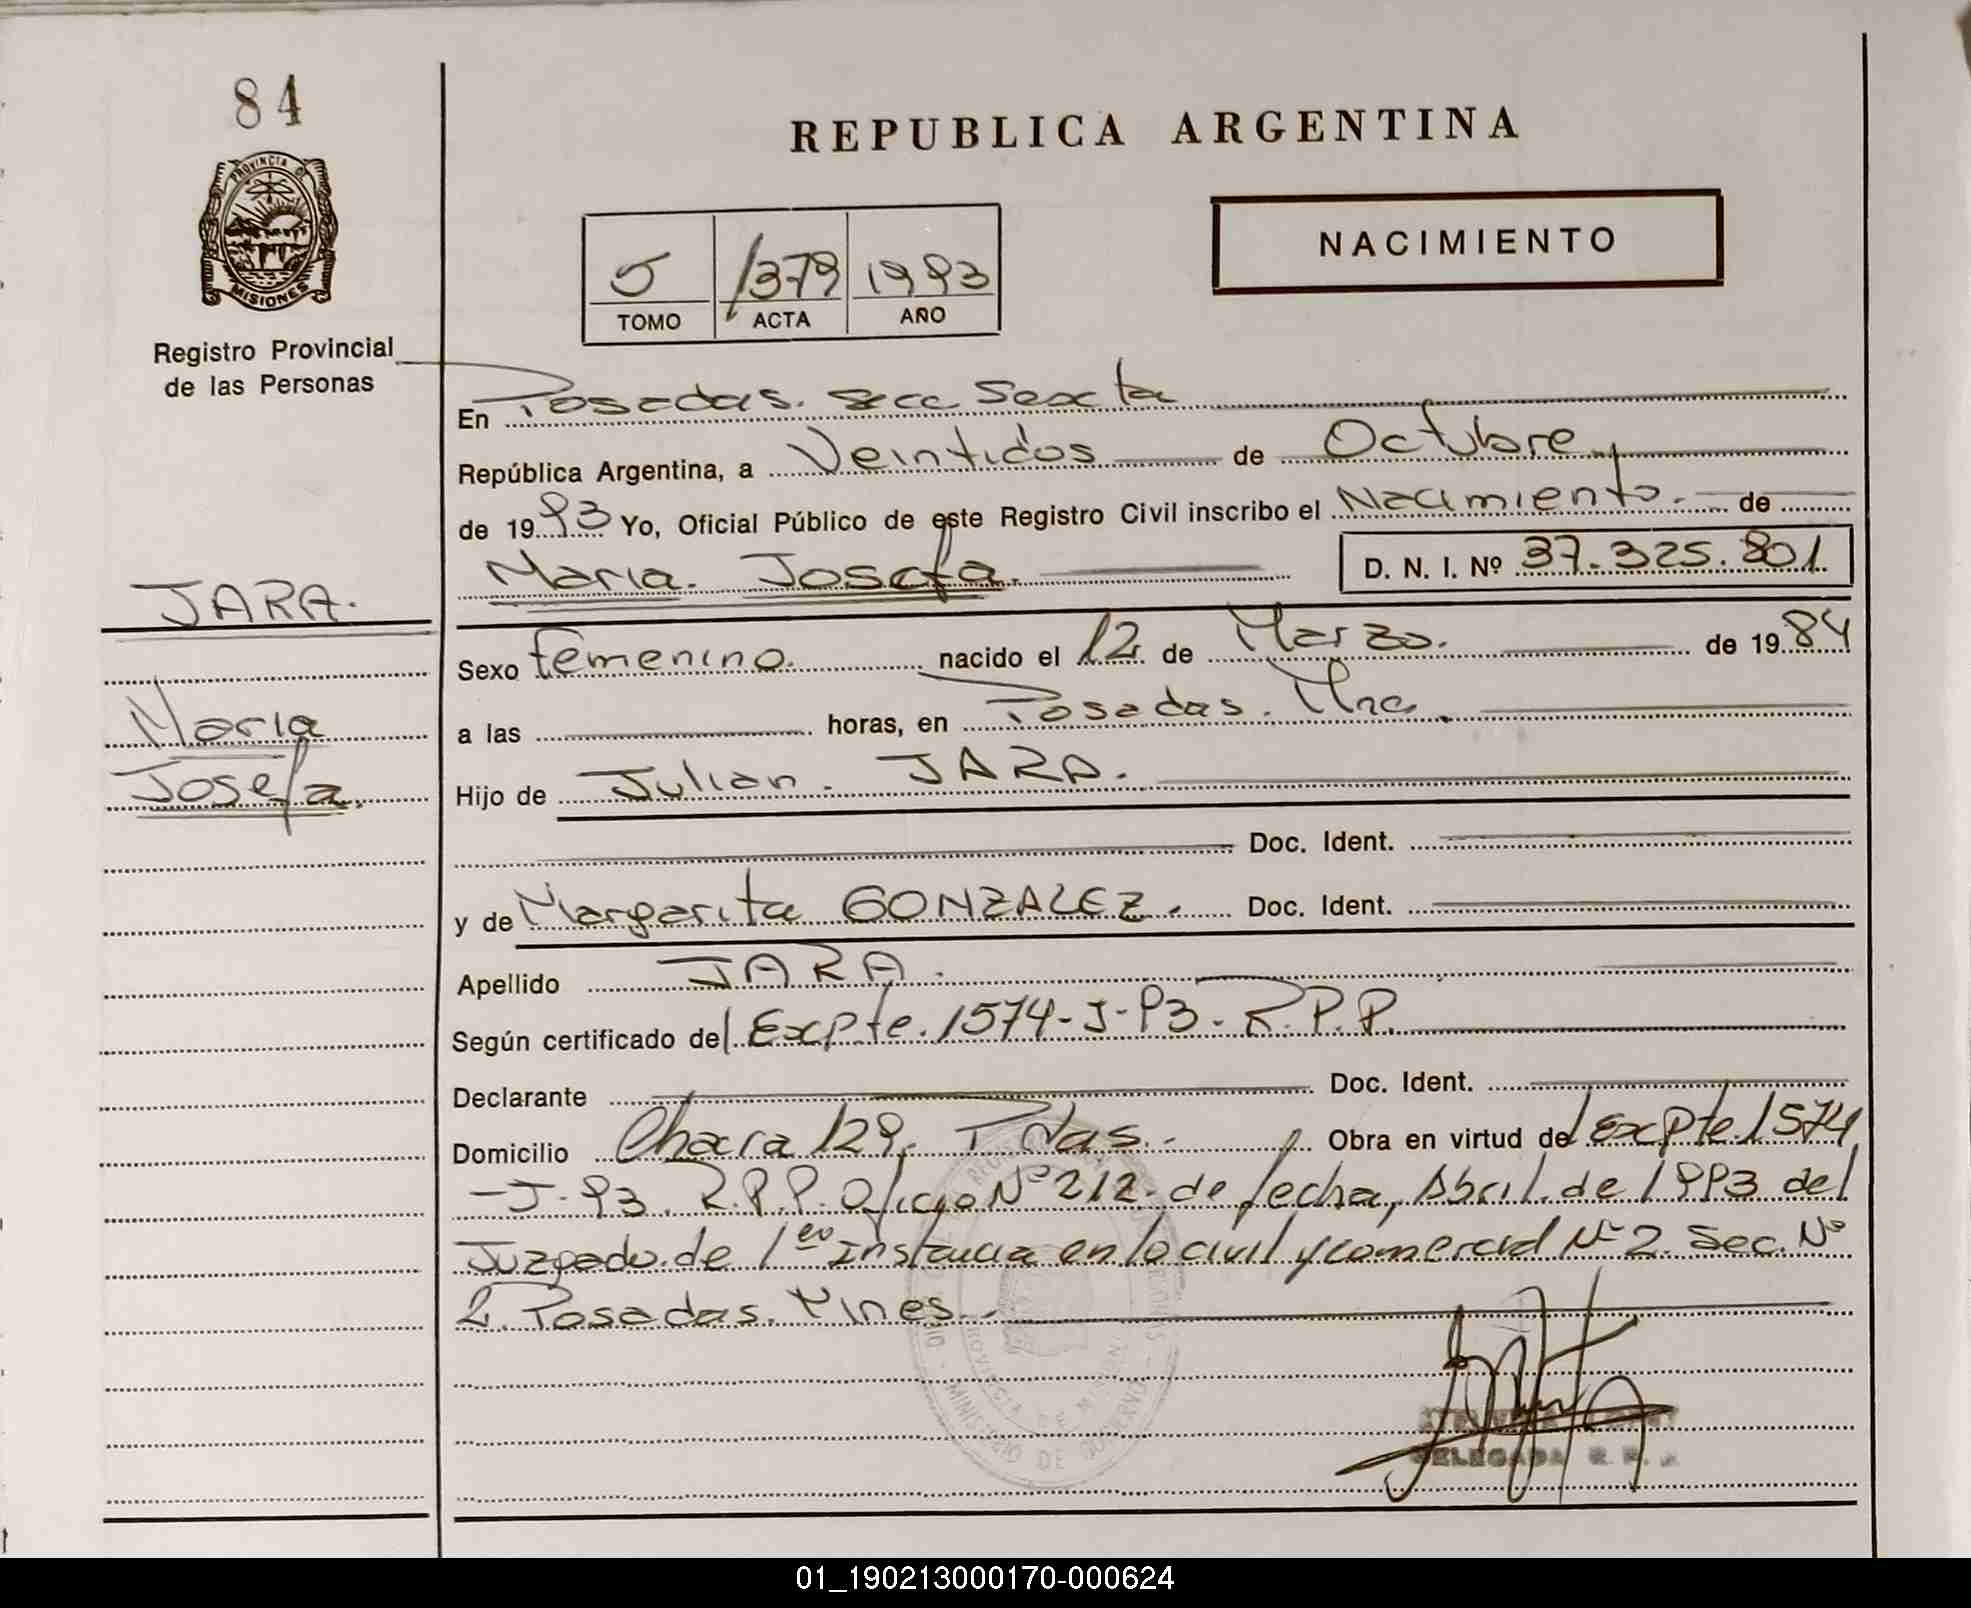 84
REPUBLICA ARGENTINA
PROVINCIA DE
MISIONES
Registro Provincial
de las Personas
NACIMIENTO
5 1379 1993
TOMO ACTA AÑO
En Posadas. secc. Sexta
República Argentina, a Veintidos de Octubre
de 1993 Yo, Oficial Público de este Registro Civil inscribo el Nacimiento. de
Maria. Josefa. D. N. I. Nº 37.325.801
JARA.
Maria
Josefa.
Sexo femenino. nacido el 12 de Marzo. de 1984
a las horas, en Posadas. Mnes.
Hijo de Julian. JARA.
Doc. Ident.
y de Margarita GONZALEZ. Doc. Ident.
Apellido JARA.
Según certificado del Expte. 1574-J-93. R.P.P.
Declarante Doc. Ident.
Domicilio Chacra 129. Pdas. Obra en virtud del Expte. 1574
-J-93. R.P.P. Oficio Nº 212. de fecha, Abril. de 1993 del
Juzgado. de 1era Instancia en lo civil y comercial Nº 2. Sec. Nº
2. Posadas. Mnes.
MINISTERIO DE GOBIERNO
PROVINCIA DE MISIONES
DELEGADA R. P. P.
01_190213000170-000624